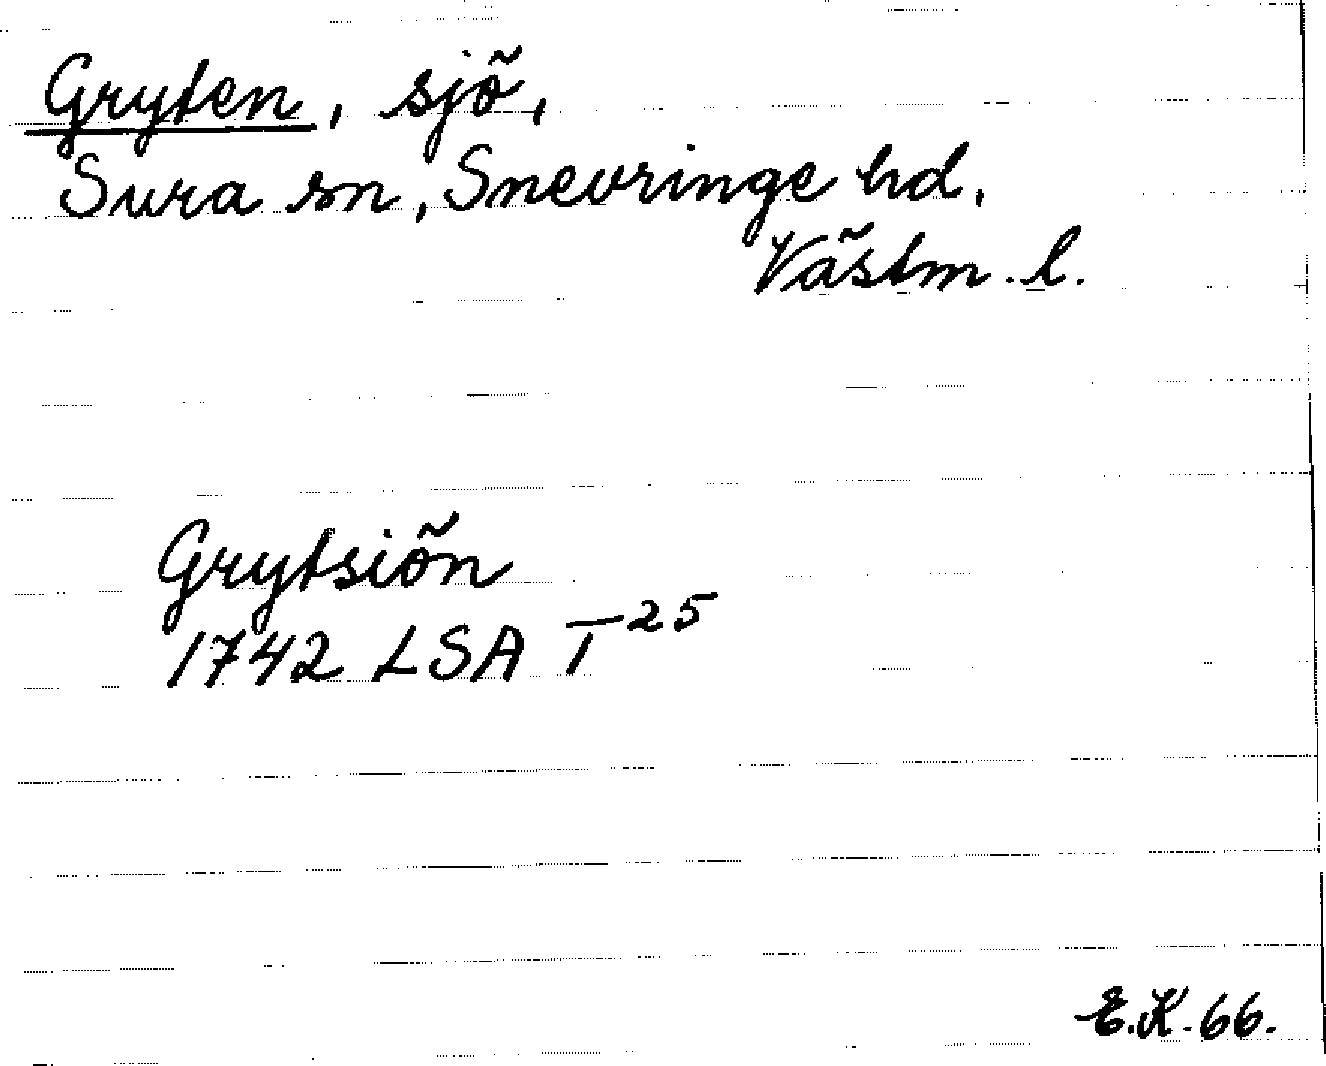 Gryten, sjö,
Sura sn, Snevringe hd.
Västm. l.
Grytsiön
1742 LSA T 25
E.K. 66.